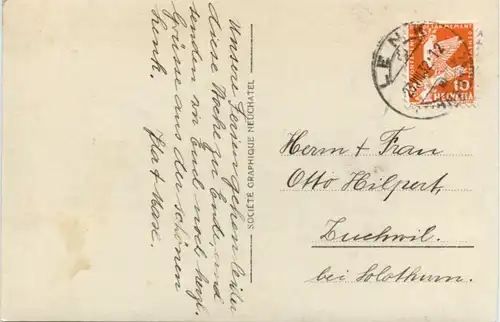 Unsere Ferien gehen leider
diese Woche zu Ende, und
senden wir Euch noch herzl.
Grüsse aus der schönen
Lenk.
Ida + Max.
SOCIÉTÉ GRAPHIQUE NEUCHATEL
LENK
HELVETIA
10
Herrn + Frau
Otto Hilpert,
Zuchwil.
bei Solothurn.